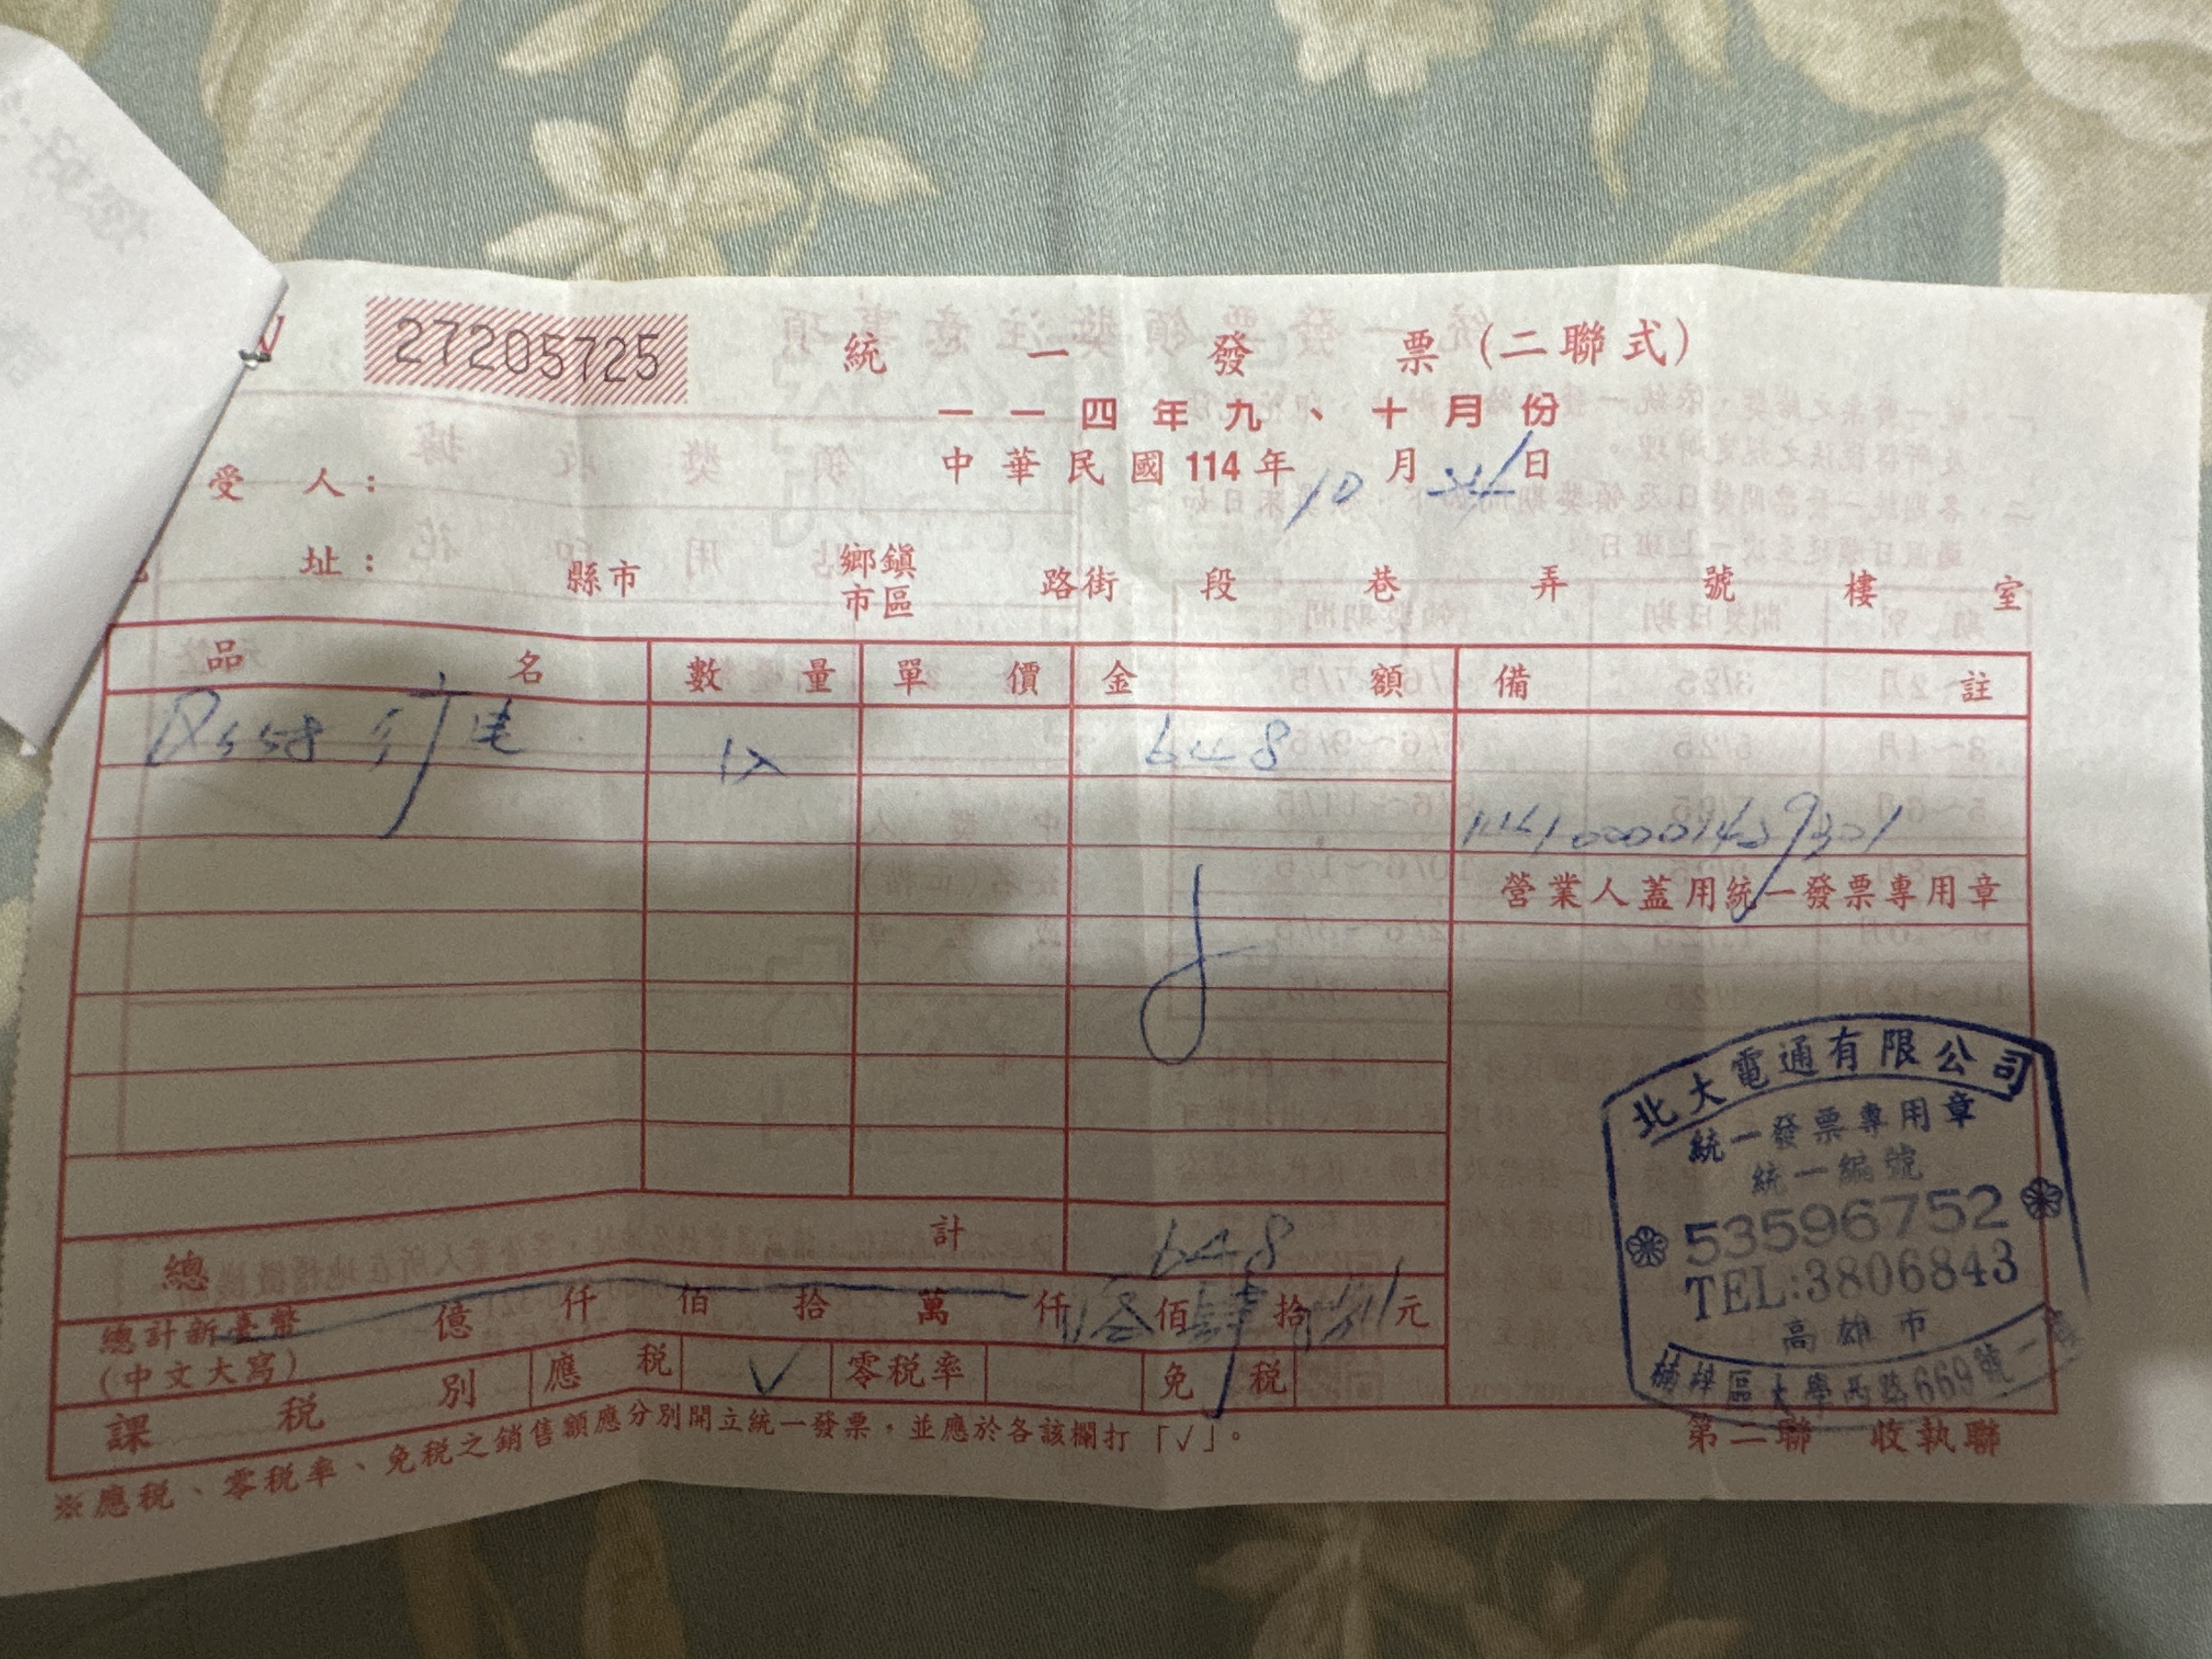 27205725
統一發票(二聯式)
一一四年九、十月份
中華民國114年10月日
受人:
址: 縣市 鄉鎮市區 路街 段 巷 弄 號 樓 室
品名 數量 單價 金額 備註
行電 1入 648
營業人蓋用統一發票專用章
北大電通有限公司
統一發票專用章
統一編號
53596752
TEL:3806843
高雄市
楠梓區大學西路669號一樓
總計 648
總計新臺幣(中文大寫) 億 仟 佰 拾 萬 仟 佰肆拾 元
課稅別 應稅 ✓ 零稅率 免稅
※應稅、零稅率、免稅之銷售額應分別開立統一發票,並應於各該欄打「✓」。
第二聯 收執聯